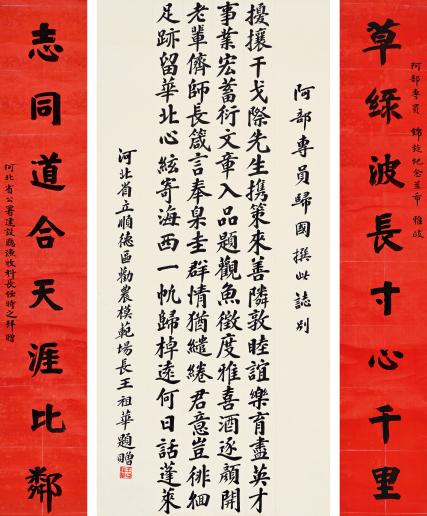 阿部專員 錦旋紀念並希 雅政
草綠波長寸心千里
阿部專員歸國撰此誌別
擾攘干戈際先生攜策來善隣敦睦誼樂育盡英才
事業宏蓄衍文章入品題觀魚徵度雅喜酒逐顏開
老輩儕師長箴言奉臬圭群情猶繾綣君意豈徘徊
足跡留華北心絃寄海西一帆歸棹遠何日話蓬萊
河北省立順德區勸農模範場長王祖華題贈
志同道合天涯比鄰
河北省公署建設廳漁牧科長任時之拜贈